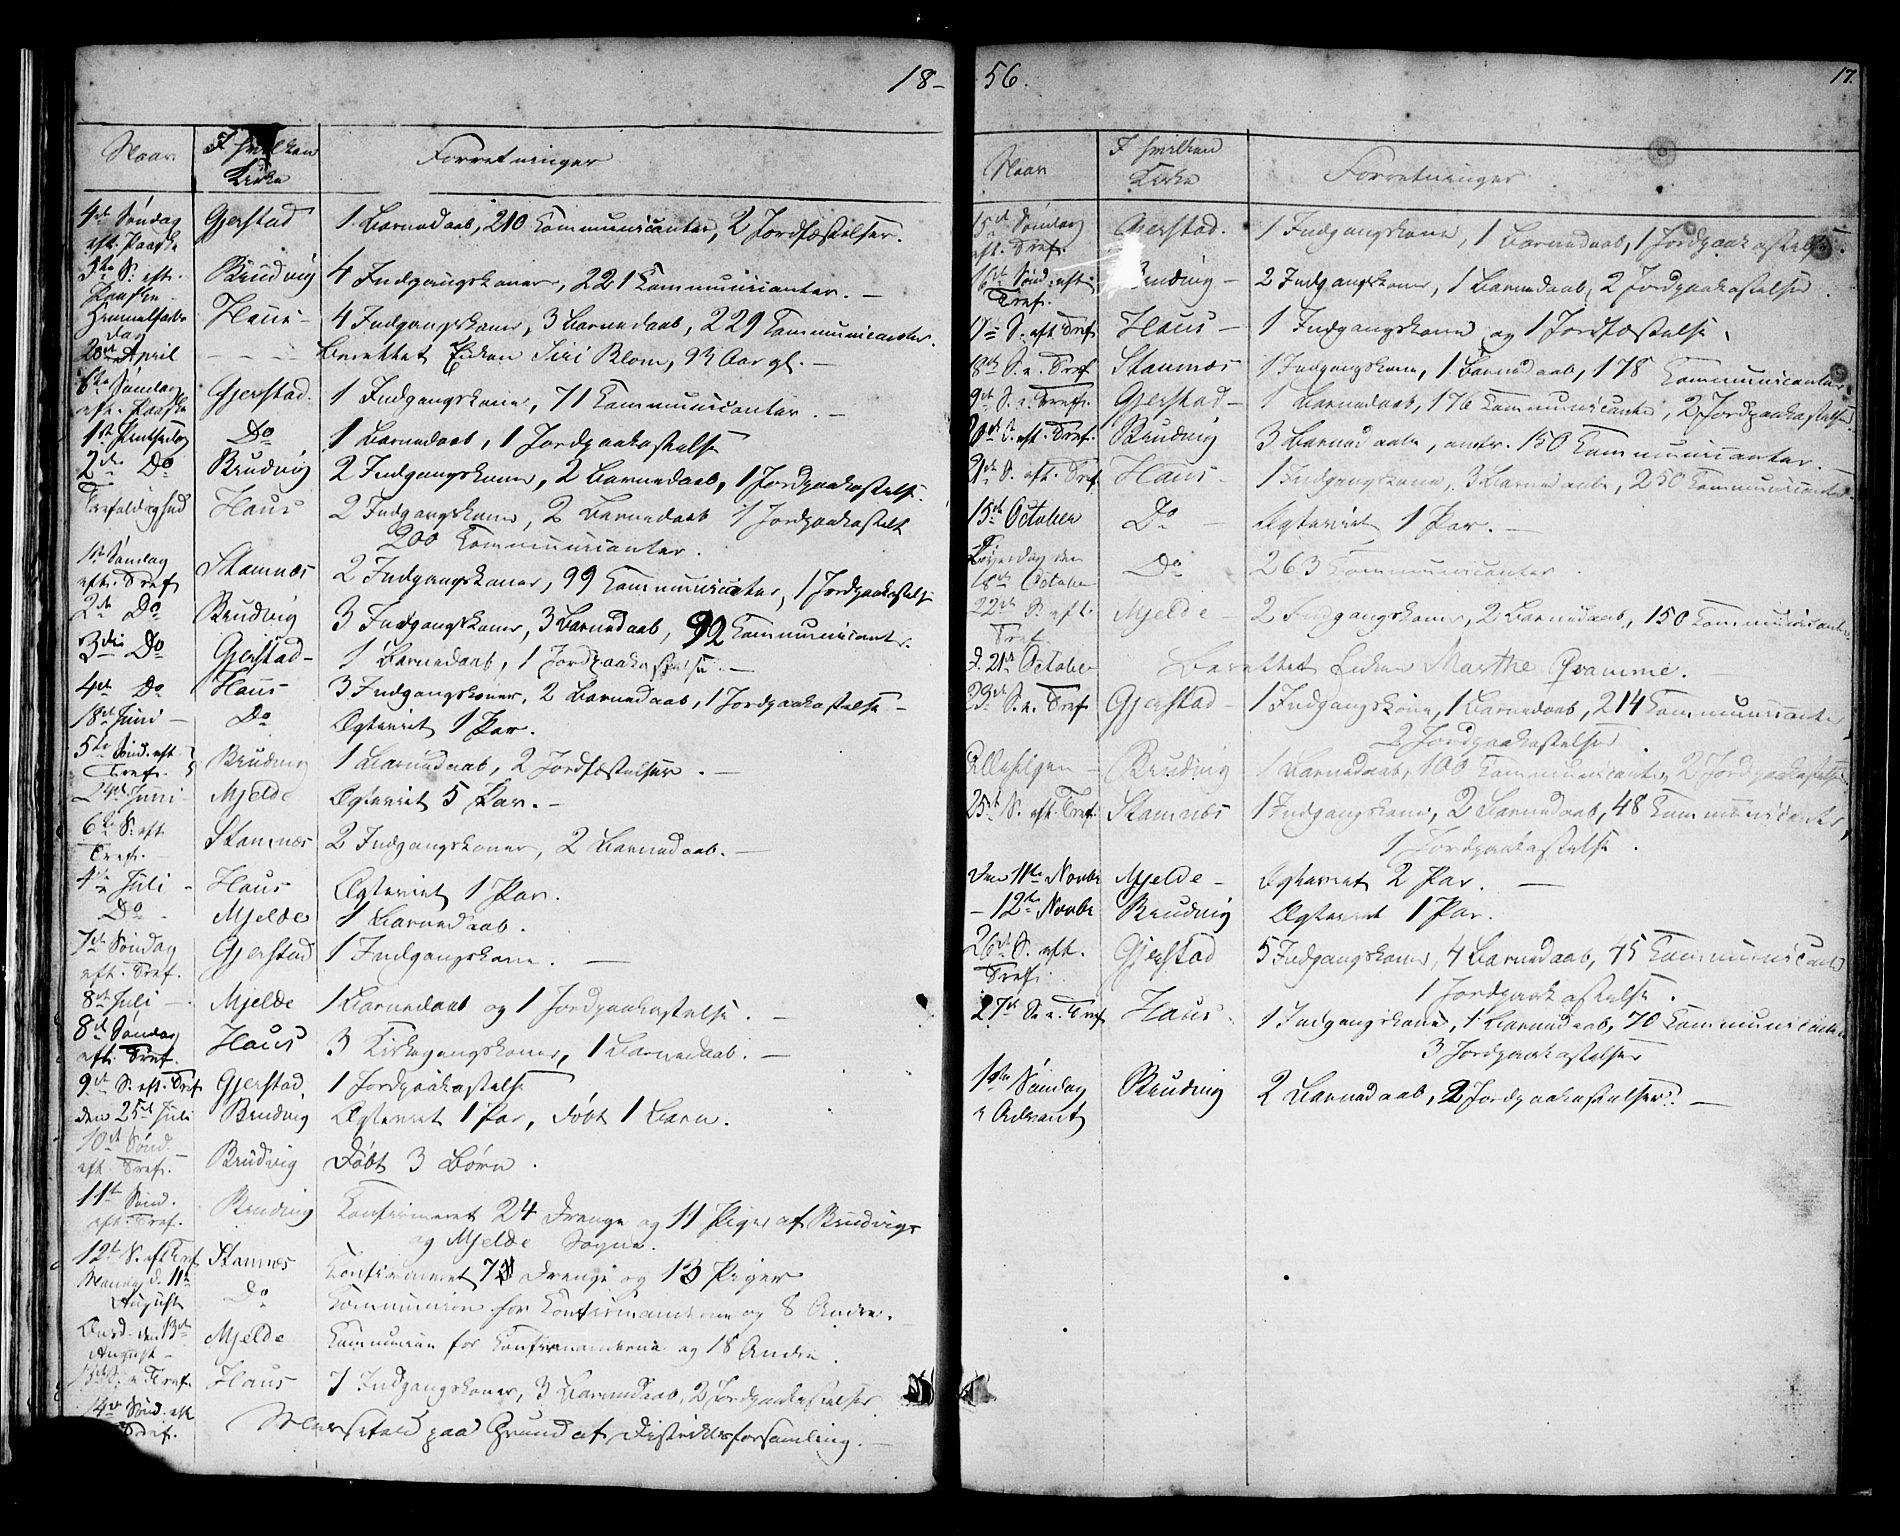 18-
Naar I hvilken Kirke Forretninger
4de Søndag eft. Paaske Gjerstad 1 Barnedaab, 210 Communicanter, 2 Jordfæstelser.
5te S. eft. Paaske Brudvig 4 Indgangskoner, 221 Communicanter. —
Himmelfarts dag Haus — 4 Indgangskoner, 3 Barnedaab, 229 Communicanter.
April — — — Berettet Enken Siri Blom, 93 Aar gl. —
6te Søndag eft. Paaske Gjerstad. 1 Indgangskone, 71 Communicanter. —
1ste Pintsedag Do 1 Barnedaab, 1 Jordpaakastelse
2den Do Brudvig 2 Indgangskoner, 2 Barnedaab, 1 Jordpaakastelse.
Trefoldighed Haus 2 Indgangskoner, 2 Barnedaab 1 Jordpaakastelse
200 Communicanter.
1ste Søndag eft. Tref. Stamnæs 2 Indgangskoner, 99 Communicanter, 1 Jordpaakastelse
2de Do Brudvig 3 Indgangskoner, 3 Barnedaab, 92 Communicanter.
3die Do Gjerstad — 1 Barnedaab, 1 Jordpaakastelse. —
4de Do Haus 3 Indgangskoner, 2 Barnedaab, 1 Jordpaakastelse —
18de Juni — Do Ægteviet 1 Par.
5te Sønd. eft. Tref. Brudvig 1 Barnedaab, 2 Jordfæstelser. —
24de Juni — Mjelde Ægteviet 5 Par. —
6te S. eft. Tref. — Stamnæs 2 Indgangskoner, 2 Barnedaab. —
4de Juli — Haus Ægteviet 1 Par.
Do — Mjelde 1 Barnedaab.
7de Søndag eft. Tref. Gjerstad 1 Indgangskone. —
8de Juli — Mjelde 1 Barnedaab og 1 Jordpaakastelse. —
8de Søndag eft. Tref. Haus 3 Kirkegangskoner, 1 Barnedaab. —
9de S. eft. Tref. Gjerstad. 1 Jordpaakastelse
den 25de Juli Brudvig Ægteviet 1 Par, døbt 1 Barn.
10de Sønd. eft. Tref. Brudvig Døbt 3 Børn.
11te Sønd. eft. Tref. Brudvig Confirmeret 24 Drenge og 11 Piger af Brudvigs
og Mjelde Sogne.
12te S. eft Tref. Stamnæs Confirmeret Drenge og 13 Piger
Mandag d. 11te August Do Communion for Confirmanderne og 8 Andre. —
Onsd. den 13de August — Mjelde Communion for Confirmanderne og 18 Andre.
S. e. Tref. Haus 7 Indgangskoner, 3 Barnedaab, 2 Jordpaakastelser
14de Sønd. eft Tref. Messefald paa Grund af Distriktsforsamling. —
56.
17.
Naar I hvilken Kirke Forretninger
15de Søndag eft. Tref. Gjerstad. 1 Indgangskone, 1 Barnedaab, 1 Jordpaakastelse.
16de Sønd. eft. Tref. Brudvig — 2 Indgangskoner, 1 Barnedaab, 2 Jordpaakastelser.
17de S. eft Tref. Haus — 1 Indgangskone og 1 Jordfæstelse.
18de S. e. Tref. Stamnæs 1 Indgangskone, 1 Barnedaab, 178 Communicanter.
S. e. Tref. Gjerstad — 1 Barnedaab, 176 Communicanter, 2 Jordpaakastelser.
S. eft. Tref. Brudvig 3 Barnedaab, omtr. 150 Communicanter. —
S. eft. Tref. Haus — 1 Indgangskone, 3 Barnedaab, 250 Communicanter.
15de October Do — Ægteviet 1 Par. —
Løverdag den 18de October Do 263 Communicanter.
22de S. eft. Tref. Mjelde — 2 Indgangskoner, 2 Barnedaab, 150 Communicanter.
d. 21de October Berettet Enken Marthe Qvamme. —
23de S. e. Tref. Gjerstad — 1 Indgangskone, 1 Barnedaab, 214 Communicanter
2 Jordpaakastelser.
Allehelgen — Brudvig 1 Barnedaab, 100 Communicanter, 2 Jordpaakastelser
25de S. eft. Tref. Stamnæs 1 Indgangskone, 2 Barnedaab, 48 Communicanter,
1 Jordpaakastelse.
Den 11te Novbr Mjelde — Ægteviet 2 Par. —
— 12te Novbr Brudvig Ægteviet 1 Par.
26de S. eft. Tref. Gjerstad 5 Indgangskoner, 4 Barnedaab, 45 Communicanter
1 Jordpaakastelse.
27de S. e. Tref Haus 1 Indgangskone, 1 Barnedaab, 70 Communicanter
3 Jordpaakastelser
1ste Søndag i Advent Brudvig 2 Barnedaab, 2 Jordpaakastelser. —